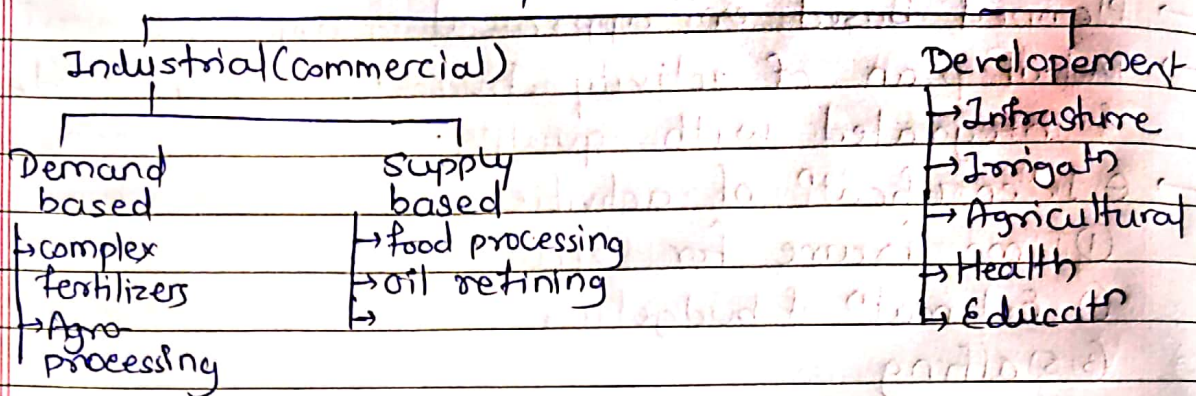 Industrial (commercial)
Developement
Demand
based
→ complex
fertilizers
→ Agro-
processing
supply
based
→ food processing
→ oil refining
→
→ Infrasture
→ Irrigatn
→ Agricultural
→ Health
→ Educatn